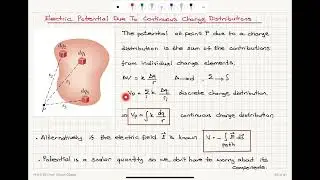 Electric Potential Due To Continuous Charge Distributions
The potential at point P due to a charge
distribution is the sum of the contributions
from individual charge elements.
ΔV = k Δq/r Δ→d Σ→∫
Vp = Σ k Δqi/ri discrete charge distribution.
so Vp = ∫ k dq/r continuous charge distribution
• Alternatively if the electric field E is known V = -∫ E·ds
path
• Potential is a scalar quantity so we don't have to worry about its
components.